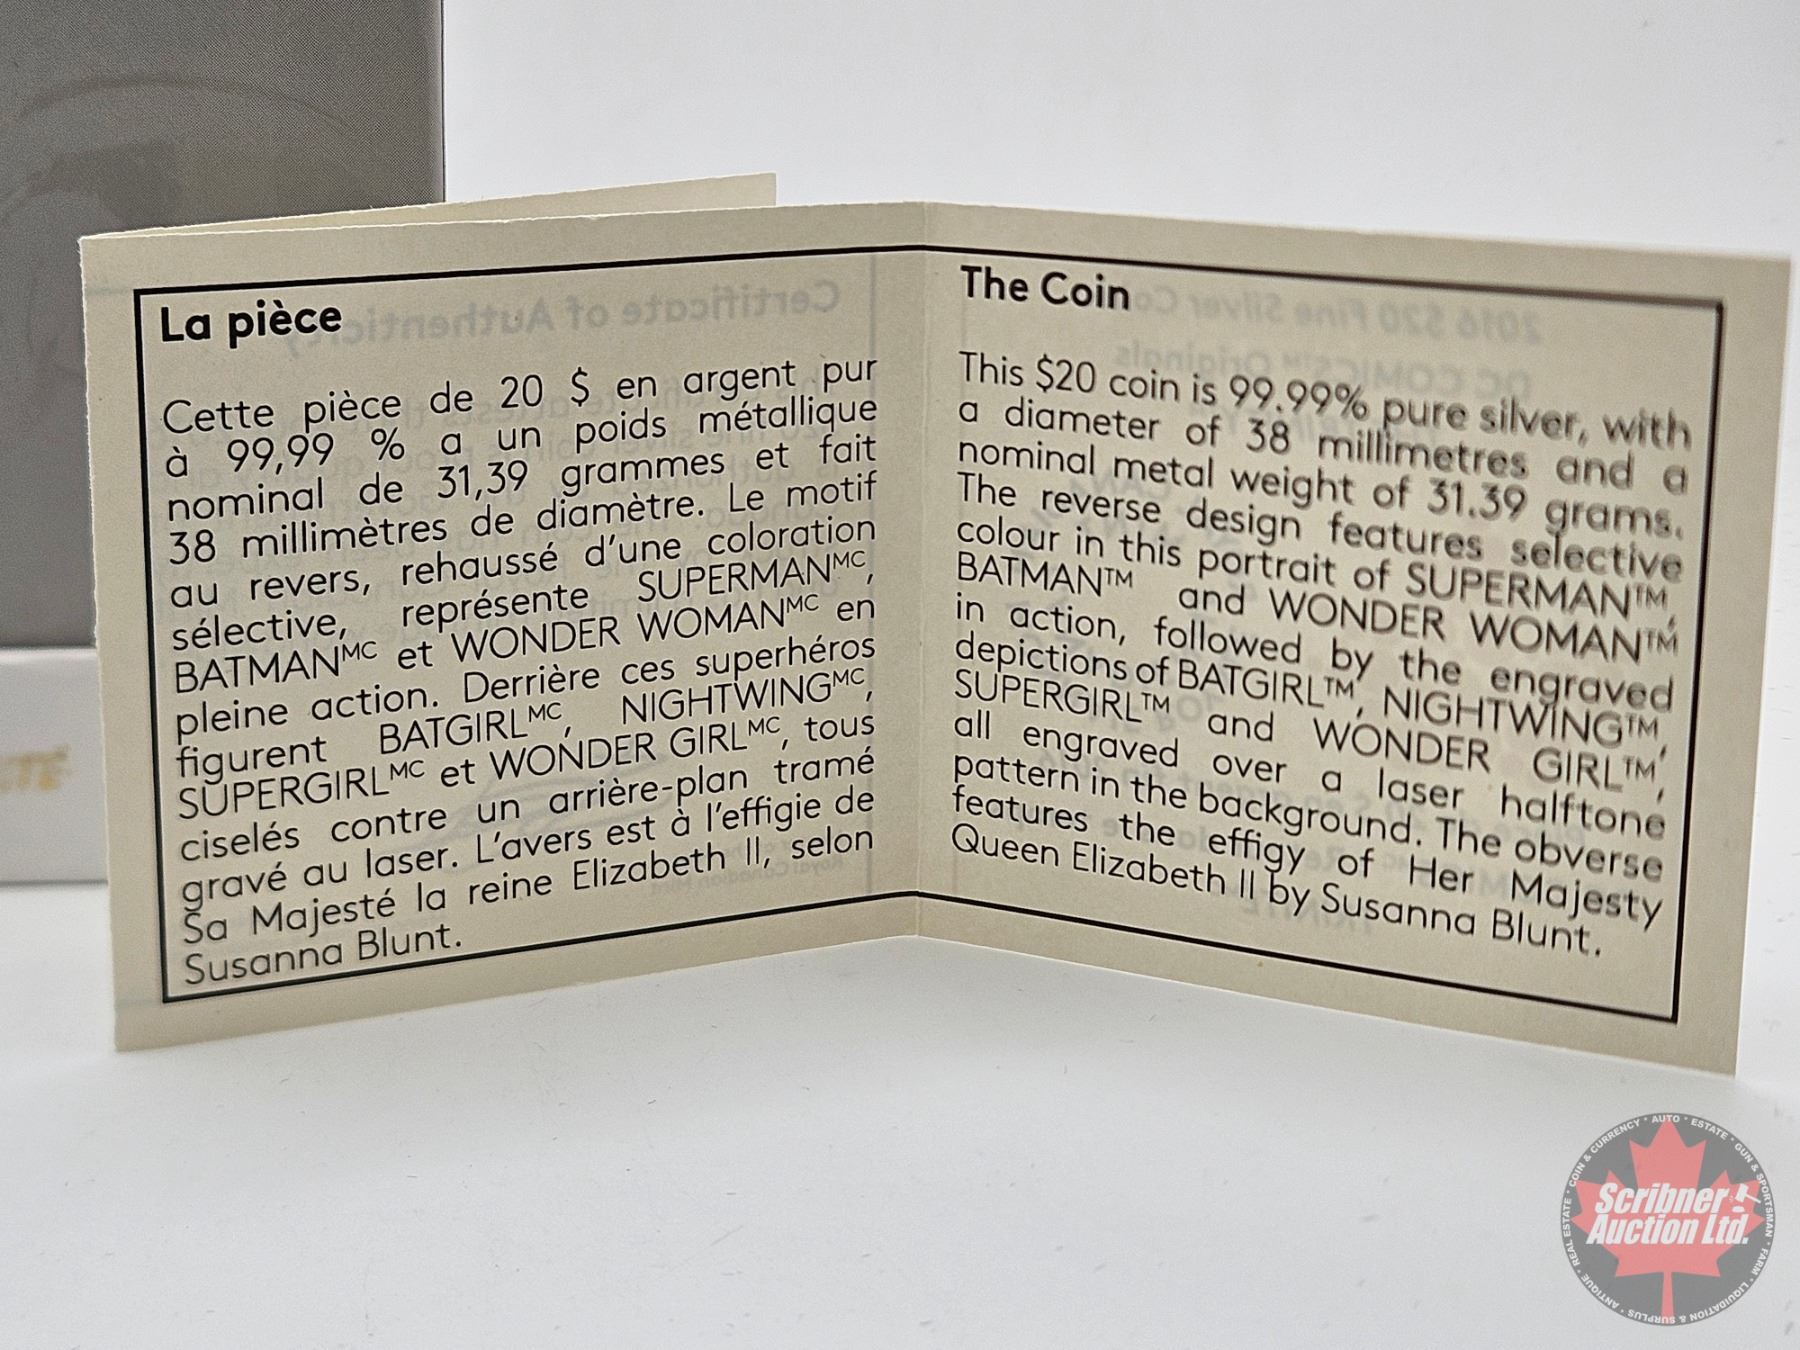 La pièce
Cette pièce de 20 $ en argent pur
à 99,99 % a un poids métallique
nominal de 31,39 grammes et fait
38 millimètres de diamètre. Le motif
au revers, rehaussé d'une coloration
sélective, représente SUPERMANᴹᶜ,
BATMANᴹᶜ et WONDER WOMANᴹᶜ en
pleine action. Derrière ces superhéros
figurent BATGIRLᴹᶜ, NIGHTWINGᴹᶜ,
SUPERGIRLᴹᶜ et WONDER GIRLᴹᶜ, tous
ciselés contre un arrière-plan tramé
gravé au laser. L'avers est à l'effigie de
Sa Majesté la reine Elizabeth II, selon
Susanna Blunt.
The Coin
This $20 coin is 99.99% pure silver, with
a diameter of 38 millimetres and a
nominal metal weight of 31.39 grams.
The reverse design features selective
colour in this portrait of SUPERMAN™,
BATMAN™ and WONDER WOMAN™
in action, followed by the engraved
depictions of BATGIRL™, NIGHTWING™,
SUPERGIRL™ and WONDER GIRL™,
all engraved over a laser halftone
pattern in the background. The obverse
features the effigy of Her Majesty
Queen Elizabeth II by Susanna Blunt.
Certificate of Authenticity
2016 $20 Fine Silver Co
DC COMICS™ Originals
Scribner
Auction Ltd.
COIN & CURRENCY · AUTO · ESTATE · GUN & SPORTSMAN · FARM · LIQUIDATION & SURPLUS · ANTIQUE · REAL ESTATE ·